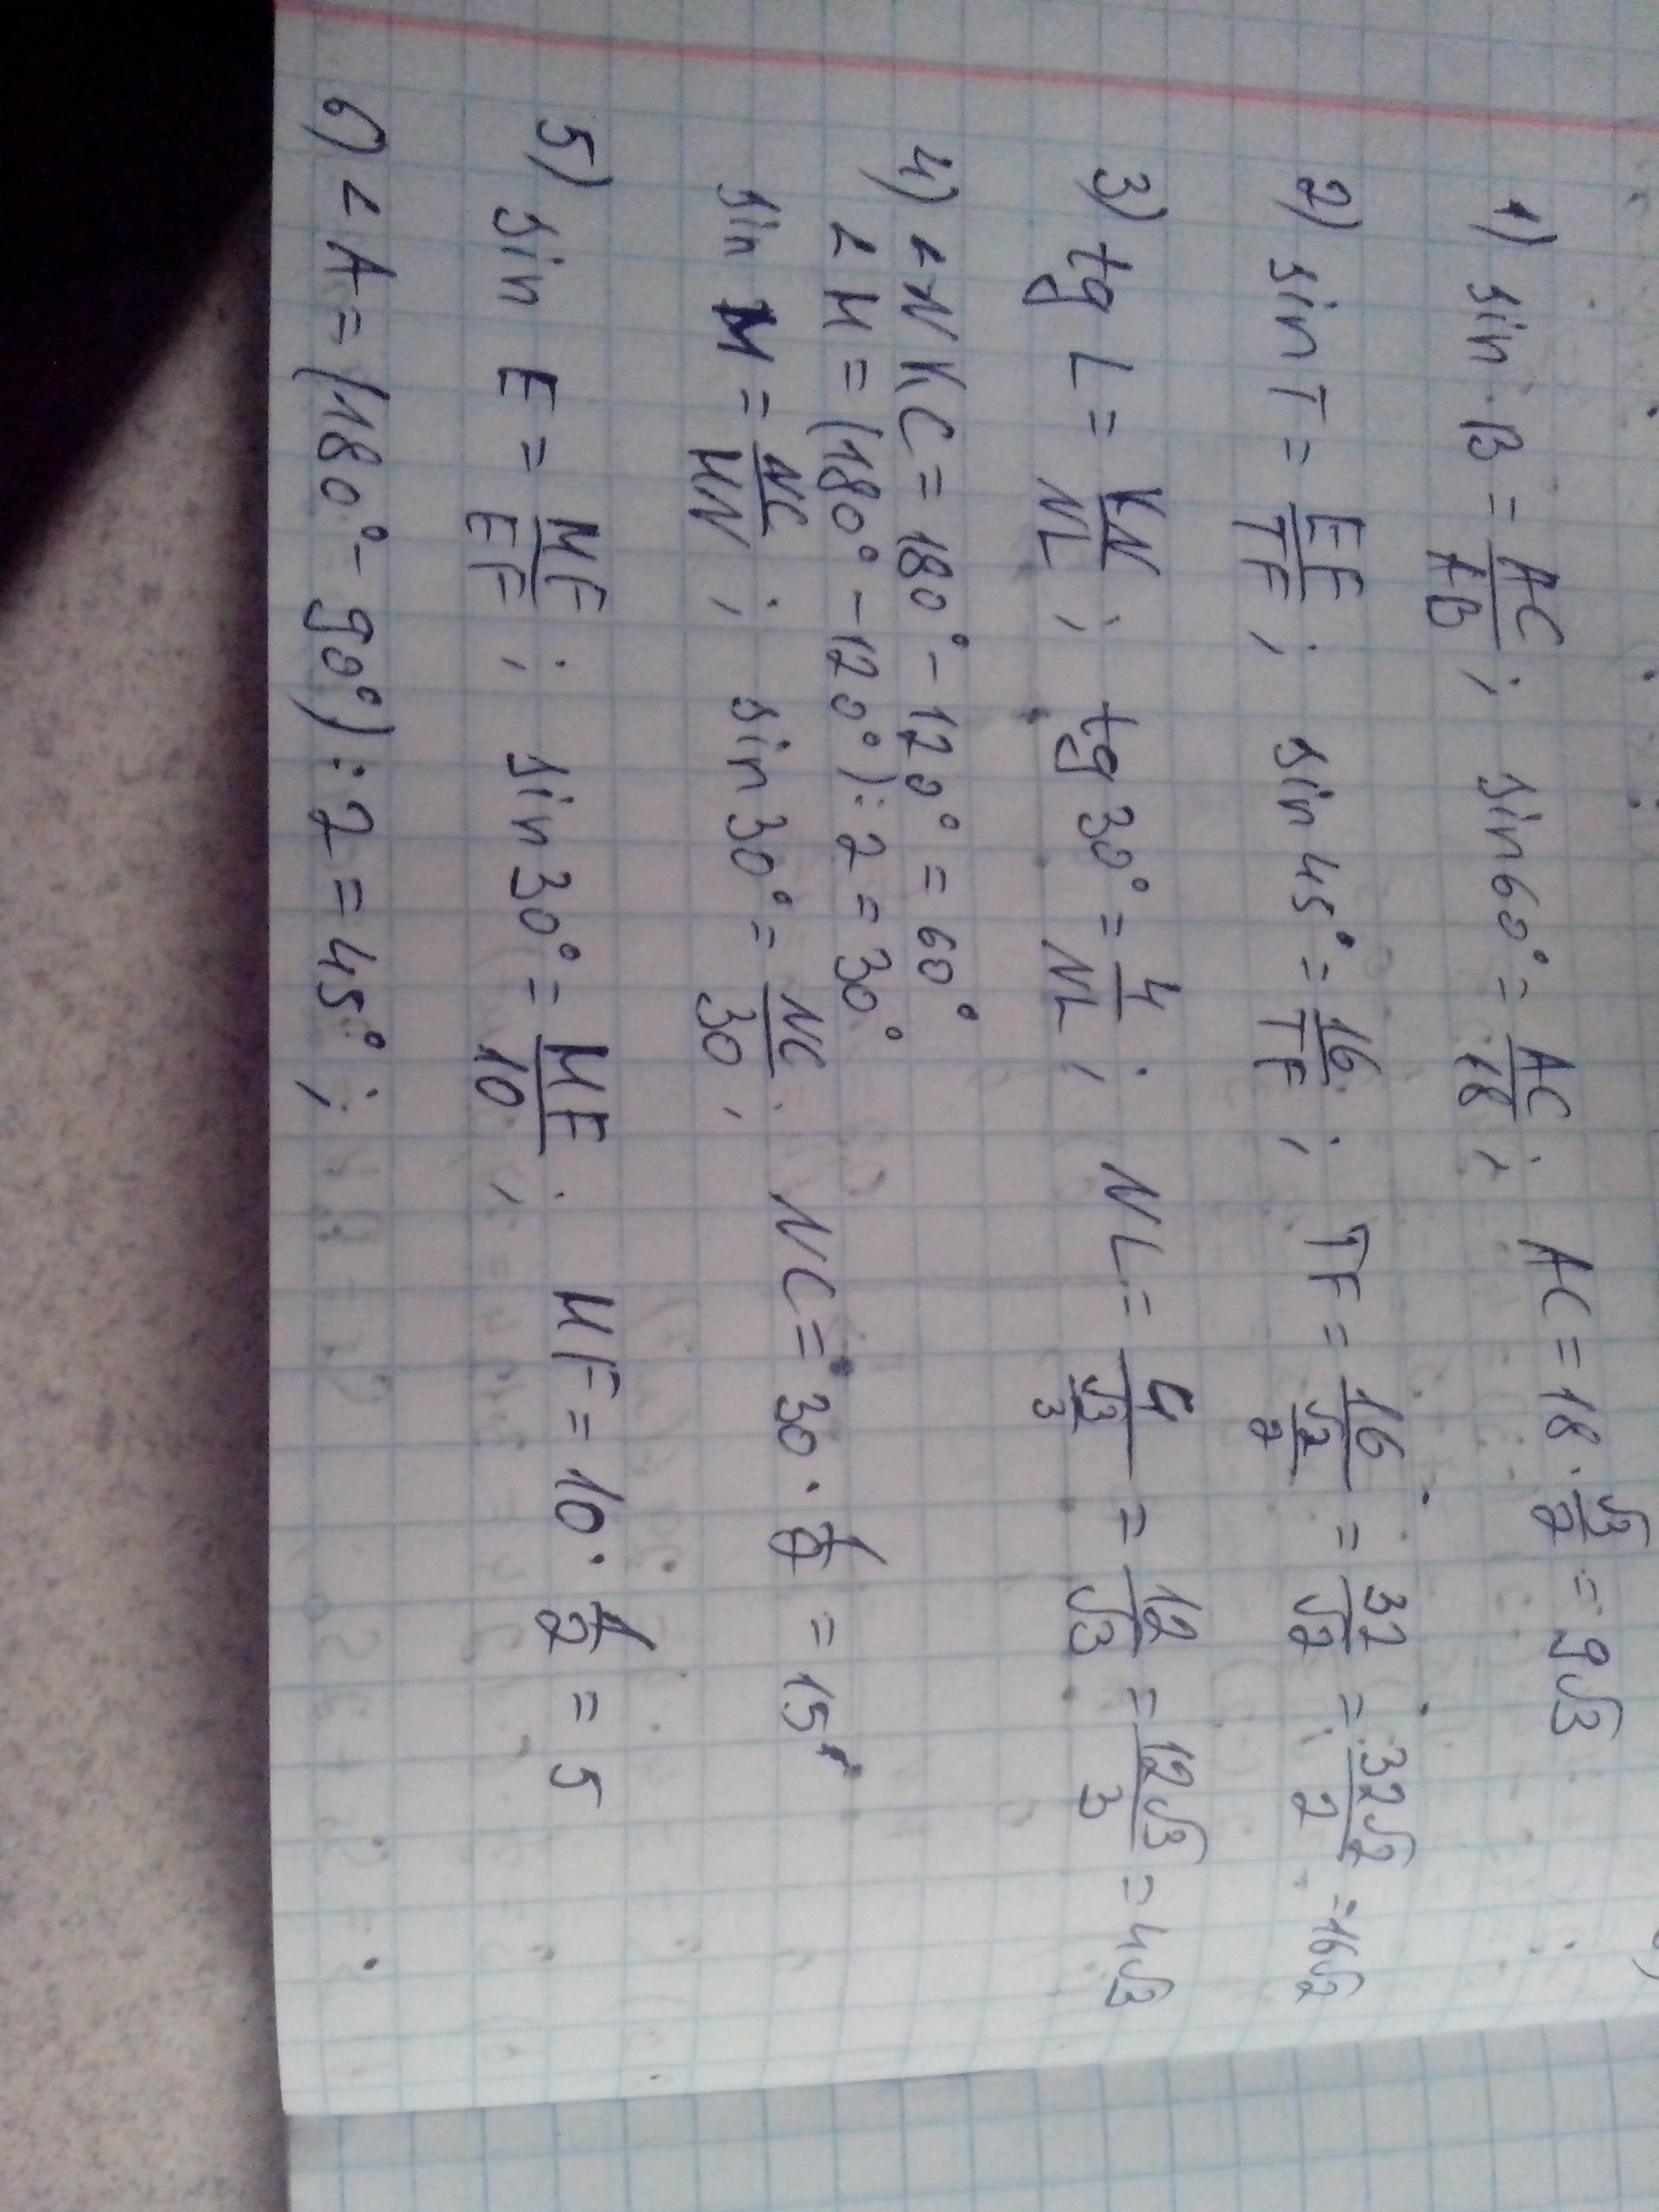 1) sin B = AC/AB; sin 60° = AC/18; AC = 18 · √3/2 = 9√3
2) sin T = EF/TF; sin 45° = 16/TF; TF = 16/(√2/2) = 32/√2 = 32√2/2 = 16√2
3) tg L = KN/NL; tg 30° = 4/NL; NL = 4/(√3/3) = 12/√3 = 12√3/3 = 4√3
4) ∠NKC = 180° - 120° = 60°
∠M = (180° - 120°) : 2 = 30°
sin M = NC/MN; sin 30° = NC/30; NC = 30 · 1/2 = 15
5) sin E = MF/EF; sin 30° = MF/10; MF = 10 · 1/2 = 5
6) ∠A = (180° - 90°) : 2 = 45°;